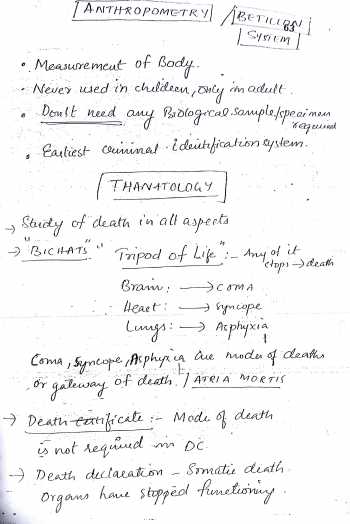 ANTHROPOMETRY / BETILLION
63
SYSTEM
• Measurement of Body.
• Never used in children, only in adult.
• Don't need any Biological sample/specimen
required
• Earliest criminal identification system.
THANATOLOGY
→ Study of death in all aspects
→ "BICHATS" "Tripod of Life" :- Any of it
stops → death
Brain: → COMA
Heart: → Syncope
Lungs: → Asphyxia
Coma, Syncope, Asphyxia are modes of deaths
or gateway of death. / ATRIA MORTIS
→ Death certificate :- Mode of death
is not required in DC.
→ Death declaration - Somatic death.
Organs have stopped functioning.